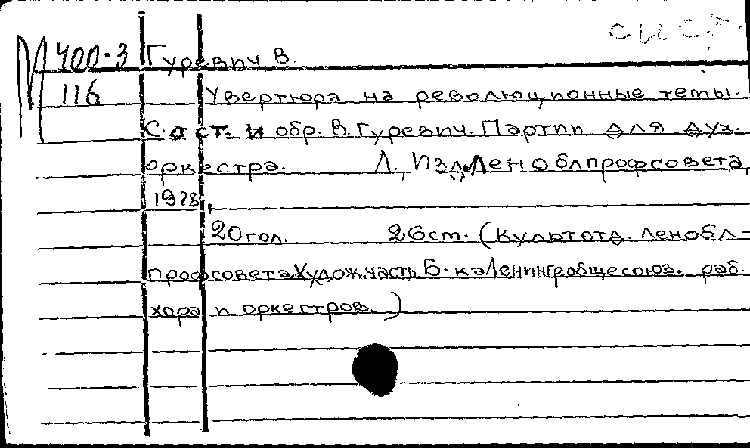 сист.
М 400-3 Гуревич В.
116 Увертюра на революционные темы.
Сост. и обр. В. Гуревич. Партии для дух.
оркестра. Л., Изд. Леноблпрофсовета,
1928,
20 гол. 26 см. (Культотд. Ленобл-
профсовета Худож. часть Б-ка Ленингр. общесоюз. раб.
хора и оркестров.)